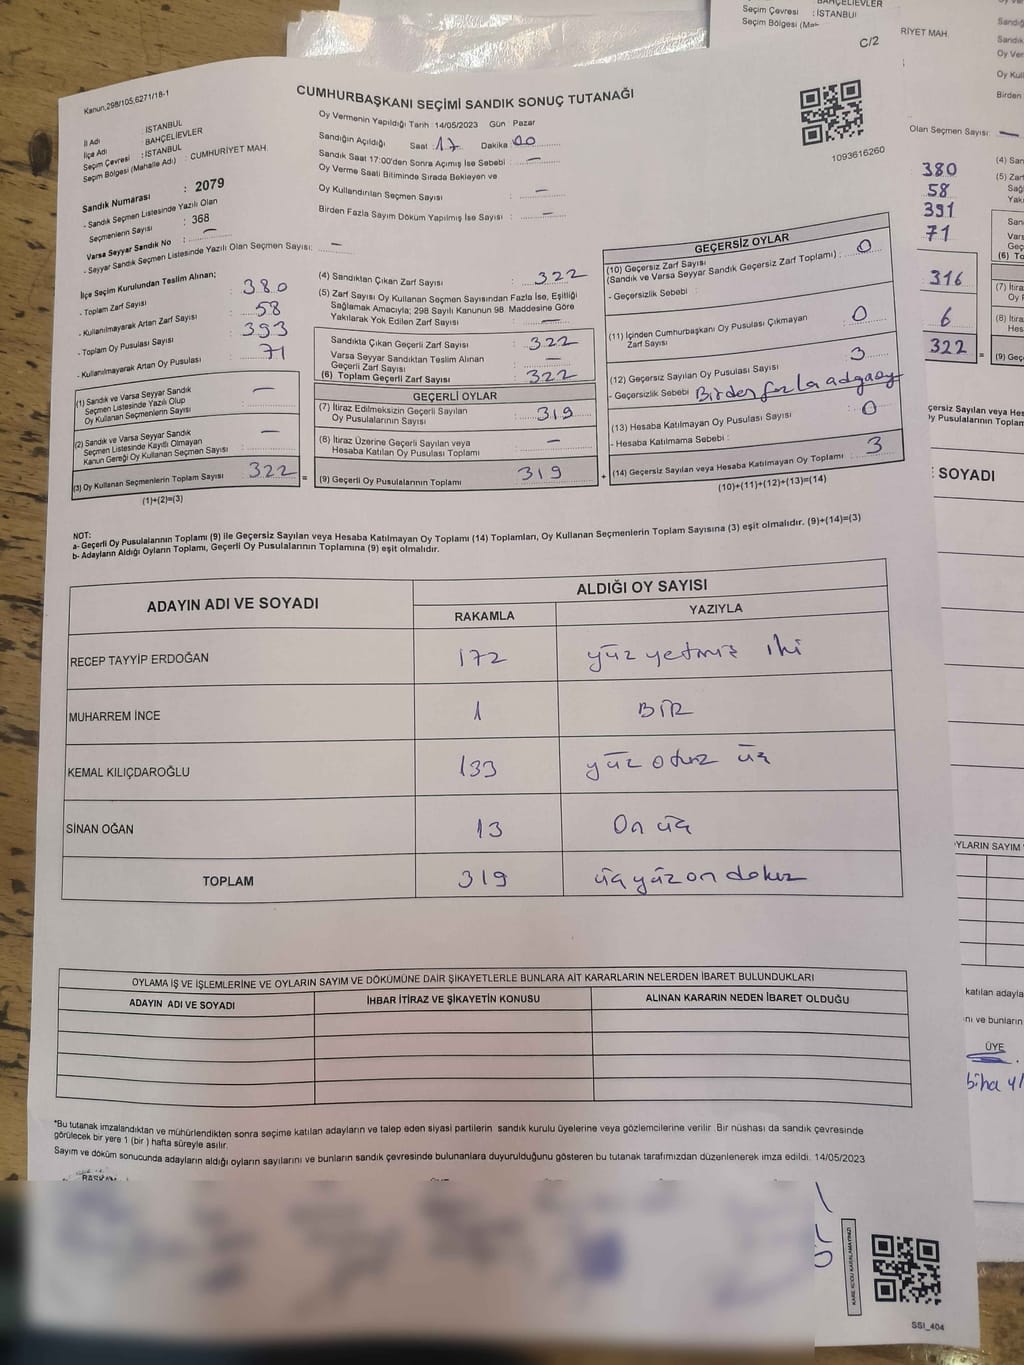 BAHÇELİEVLER
Seçim Çevresi : İSTANBUL
Seçim Bölgesi (Mah
RİYET MAH.
C/2
Kanun,298/105,6271/18-1
CUMHURBAŞKANI SEÇİMİ SANDIK SONUÇ TUTANAĞI
İl Adı : İSTANBUL
İlçe Adı : BAHÇELİEVLER
Seçim Çevresi : İSTANBUL
Seçim Bölgesi (Mahalle Adı) : CUMHURİYET MAH.
Oy Vermenin Yapıldığı Tarih :14/05/2023 Gün Pazar
Sandığın Açıldığı Saat : 17 Dakika 00
Sandık Saat 17:00'den Sonra Açımış İse Sebebi : —
Oy Verme Saati Bitiminde Sırada Bekleyen ve
Oy Kullandırılan Seçmen Sayısı : —
Birden Fazla Sayım Döküm Yapılmış İse Sayısı : —
1093616260
Sandık Numarası : 2079
- Sandık Seçmen Listesinde Yazılı Olan
Seçmenlerin Sayısı : 368
Varsa Seyyar Sandık No : —
- Seyyar Sandık Seçmen Listesinde Yazılı Olan Seçmen Sayısı: —
İlçe Seçim Kurulundan Teslim Alınan;
- Toplam Zarf Sayısı : 380
- Kullanılmayarak Artan Zarf Sayısı : 58
- Toplam Oy Pusulası Sayısı : 393
- Kullanılmayarak Artan Oy Pusulası : 71
(1) Sandık ve Varsa Seyyar Sandık
Seçmen Listesinde Yazılı Olup
Oy Kullanan Seçmenlerin Sayısı : —
(2) Sandık ve Varsa Seyyar Sandık
Seçmen Listesinde Kayıtlı Olmayan
Kanun Gereği Oy Kullanan Seçmen Sayısı : —
(3) Oy Kullanan Seçmenlerin Toplam Sayısı : 322
(1)+(2)=(3)
=
(4) Sandıktan Çıkan Zarf Sayısı : 322
(5) Zarf Sayısı Oy Kullanan Seçmen Sayısından Fazla İse, Eşitliği
Sağlamak Amacıyla; 298 Sayılı Kanunun 98. Maddesine Göre
Yakılarak Yok Edilen Zarf Sayısı : —
Sandıkta Çıkan Geçerli Zarf Sayısı : 322
Varsa Seyyar Sandıktan Teslim Alınan
Geçerli Zarf Sayısı : —
(6) Toplam Geçerli Zarf Sayısı : 322
GEÇERLİ OYLAR
(7) İtiraz Edilmeksizin Geçerli Sayılan
Oy Pusulalarının Sayısı : 319
(8) İtiraz Üzerine Geçerli Sayılan veya
Hesaba Katılan Oy Pusulası Toplamı : —
(9) Geçerli Oy Pusulalarının Toplamı : 319
+
GEÇERSİZ OYLAR
(10) Geçersiz Zarf Sayısı
(Sandık ve Varsa Seyyar Sandık Geçersiz Zarf Toplamı) : 0
- Geçersizlik Sebebi :
(11) İçinden Cumhurbaşkanı Oy Pusulası Çıkmayan
Zarf Sayısı : 0
(12) Geçersiz Sayılan Oy Pusulası Sayısı : 3
- Geçersizlik Sebebi Birden fazla adaya oy
(13) Hesaba Katılmayan Oy Pusulası Sayısı : 0
- Hesaba Katılmama Sebebi :
(14) Geçersiz Sayılan veya Hesaba Katılmayan Oy Toplamı : 3
(10)+(11)+(12)+(13)=(14)
NOT:
a- Geçerli Oy Pusulalarının Toplamı (9) ile Geçersiz Sayılan veya Hesaba Katılmayan Oy Toplamı (14) Toplamları, Oy Kullanan Seçmenlerin Toplam Sayısına (3) eşit olmalıdır. (9)+(14)=(3)
b- Adayların Aldığı Oyların Toplamı, Geçerli Oy Pusulalarının Toplamına (9) eşit olmalıdır.
ADAYIN ADI VE SOYADI
ALDIĞI OY SAYISI
RAKAMLA YAZIYLA
RECEP TAYYİP ERDOĞAN 172 yüz yetmiş iki
MUHARREM İNCE 1 BİR
KEMAL KILIÇDAROĞLU 133 yüz otuz üç
SİNAN OĞAN 13 On üç
TOPLAM 319 üçyüz on dokuz
OYLAMA İŞ VE İŞLEMLERİNE VE OYLARIN SAYIM VE DÖKÜMÜNE DAİR ŞİKAYETLERLE BUNLARA AİT KARARLARIN NELERDEN İBARET BULUNDUKLARI
ADAYIN ADI VE SOYADI İHBAR İTİRAZ VE ŞİKAYETİN KONUSU ALINAN KARARIN NEDEN İBARET OLDUĞU
*Bu tutanak imzalandıktan ve mühürlendikten sonra seçime katılan adayların ve talep eden siyasi partilerin sandık kurulu üyelerine veya gözlemcilerine verilir .Bir nüshası da sandık çevresinde
görülecek bir yere 1 (bir ) hafta süreyle asılır.
Sayım ve döküm sonucunda adayların aldığı oyların sayılarını ve bunların sandık çevresinde bulunanlara duyurulduğunu gösteren bu tutanak tarafımızdan düzenlenerek imza edildi. 14/05/2023
BAŞKAN
KARE KODU KARALAMAYINIZ!
SSI_404
Sandık
Oy Ver
Oy Kull
Birden
Olan Seçmen Sayısı: —
380
58
391
71
316
6
322 =
(4) San
(5) Zarf
Sağ
Yak
San
Vars
Geç
(6) To
(7) İtira
Oy F
(8) İtira
Hes
(9) Geç
E SOYADI
YLARIN SAYIM
katılan adayla
nı ve bunların
ÜYE